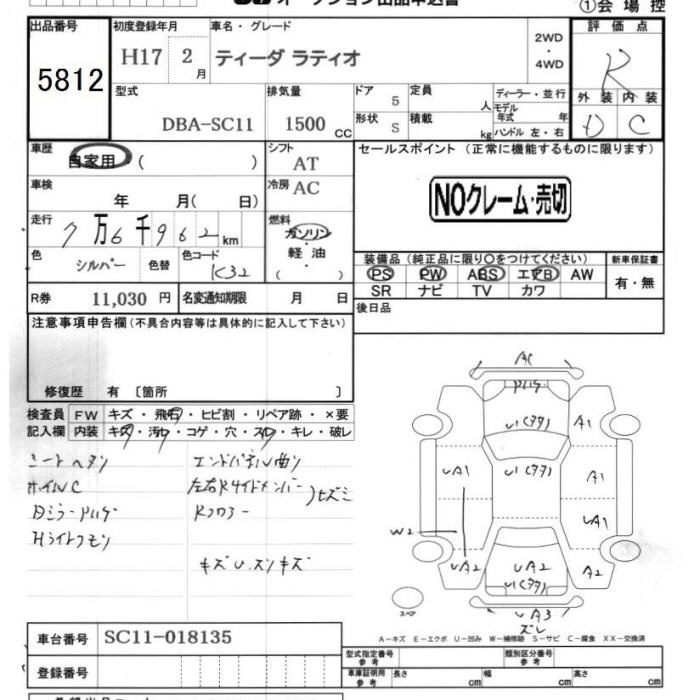 オークション出品申込書
①会場控
出品番号
5812
初度登録年月
H17 2月
車名・グレード
ティーダ ラティオ
2WD
・
4WD
評価点
R
型式
DBA-SC11
排気量
1500 CC
ドア 5
形状 S
定員 人
積載 kg
ディーラー・並行
モデル年式 年
ハンドル 左・右
外装 内装
D C
車歴
自家用 ( )
シフト
AT
セールスポイント (正常に機能するものに限ります)
NOクレーム・売切
車検
年 月( 日)
冷房 AC
走行
7万6千962km
燃料
ガソリン
・
軽油
( )
色
シルバー 色替
色コード
K32
装備品 (純正品に限り○をつけてください)
PS PW ABS エアB AW
SR ナビ TV カワ
新車保証書
有・無
R券 11,030 円
名変通知期限 月 日
後日品
注意事項申告欄 (不具合内容等は具体的に記入して下さい)
修復歴 有 〔箇所 〕
検査員記入欄
FW キズ・飛石・ヒビ割・リペア跡・×要
内装 キズ・汚・コゲ・穴・スレ・キレ・破レ
シートヘタリ
ホイルC
Bミラー
Hライトクモリ
エンドパネル曲り
左右Rサイドメンバー
Rフロアー
ヒズミ
キズU.スリキズ
A1
UA1
A1
UA1
W2
UA2
UA2
A2
UA3
ズレ
スペア
A-キズ E-エクボ U-凹み W-補修跡 S-サビ C-腐食 XX-交換済
車台番号 SC11-018135
登録番号
型式指定番号
参考
類別区分番号
参考
車庫証明用
参考
長さ cm 幅 cm 高さ cm